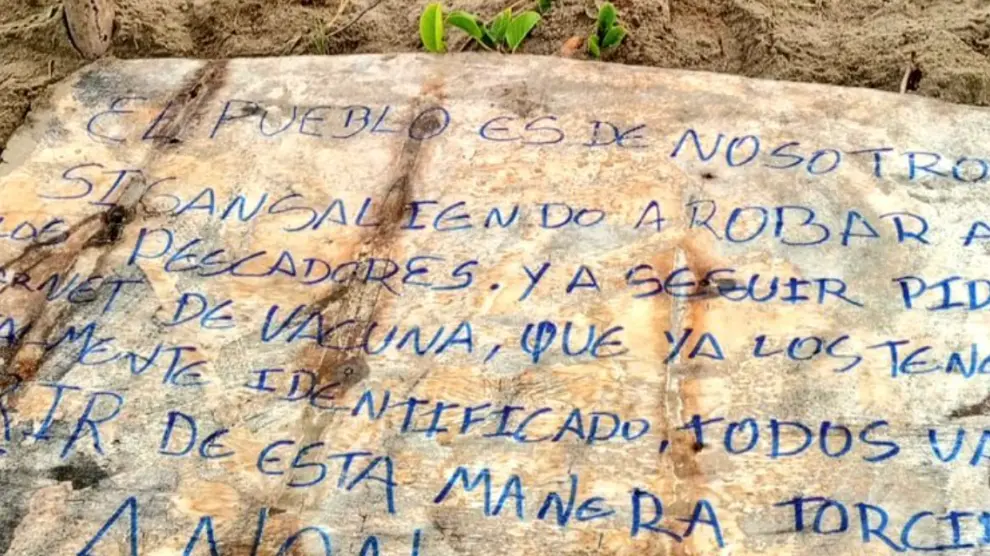 EL PUEBLO ES DE NOSOTRO
SIGANSALIENDO A ROBAR A
LOS PESCADORES. Y A SEGUIR PID
ERNET DE VACUNA, QUE YA LOS TENE
ALMENTE IDENTIFICADO, TODOS VA
RIR DE ESTA MANERA TORCID
ANON